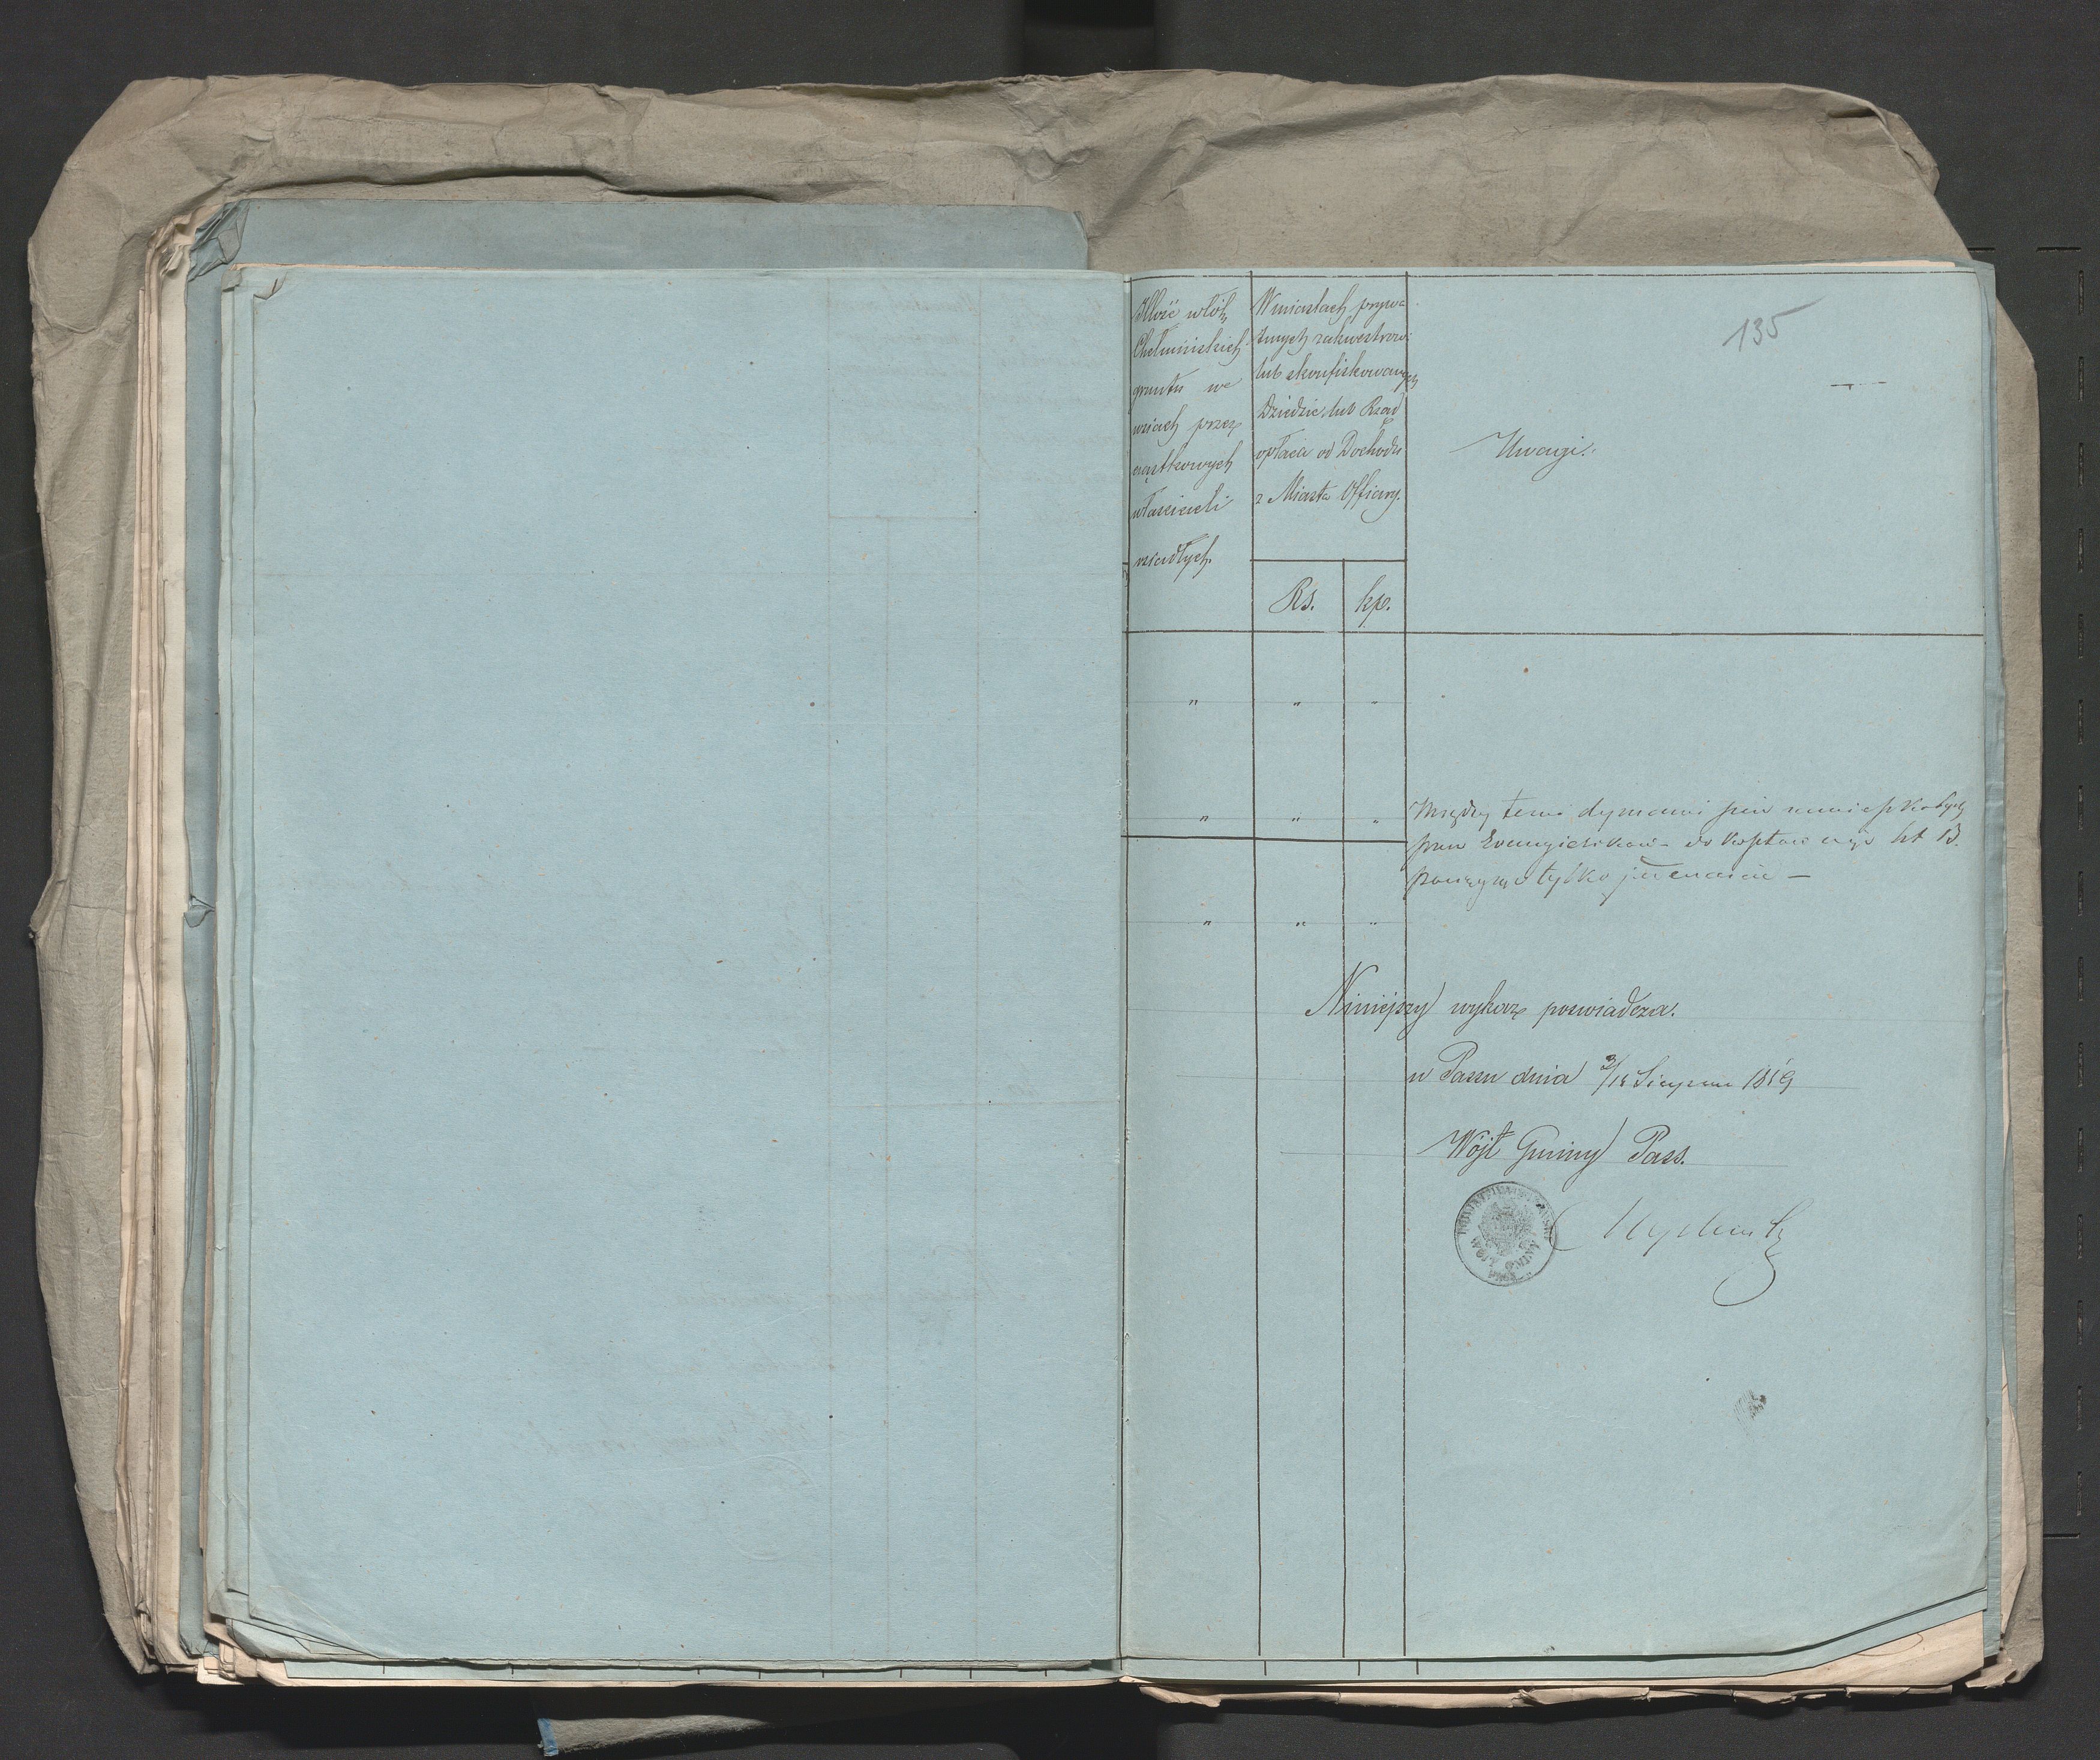 135
Illość włók
Chełmińskich
gruntu we
wsiach przez
cząstkowych
właścicieli
osiadłych.
W miastach prywa-
tnych zakwestrow:
lub skonfiskowanych
Dziedzic lub Rząd
opłaca od Dochodu
z Miasta Offiary.
Rs.
kp.
Uwagi.
" " "
" " "
Między temi dymami
przez Evangielików do lit B.
tylko
" " "
Niniejszy wykaz poswiadcza.
w Passu dnia 3/15 Sierpnia
Wójt Gminy Pass.
WÓJT GMINY